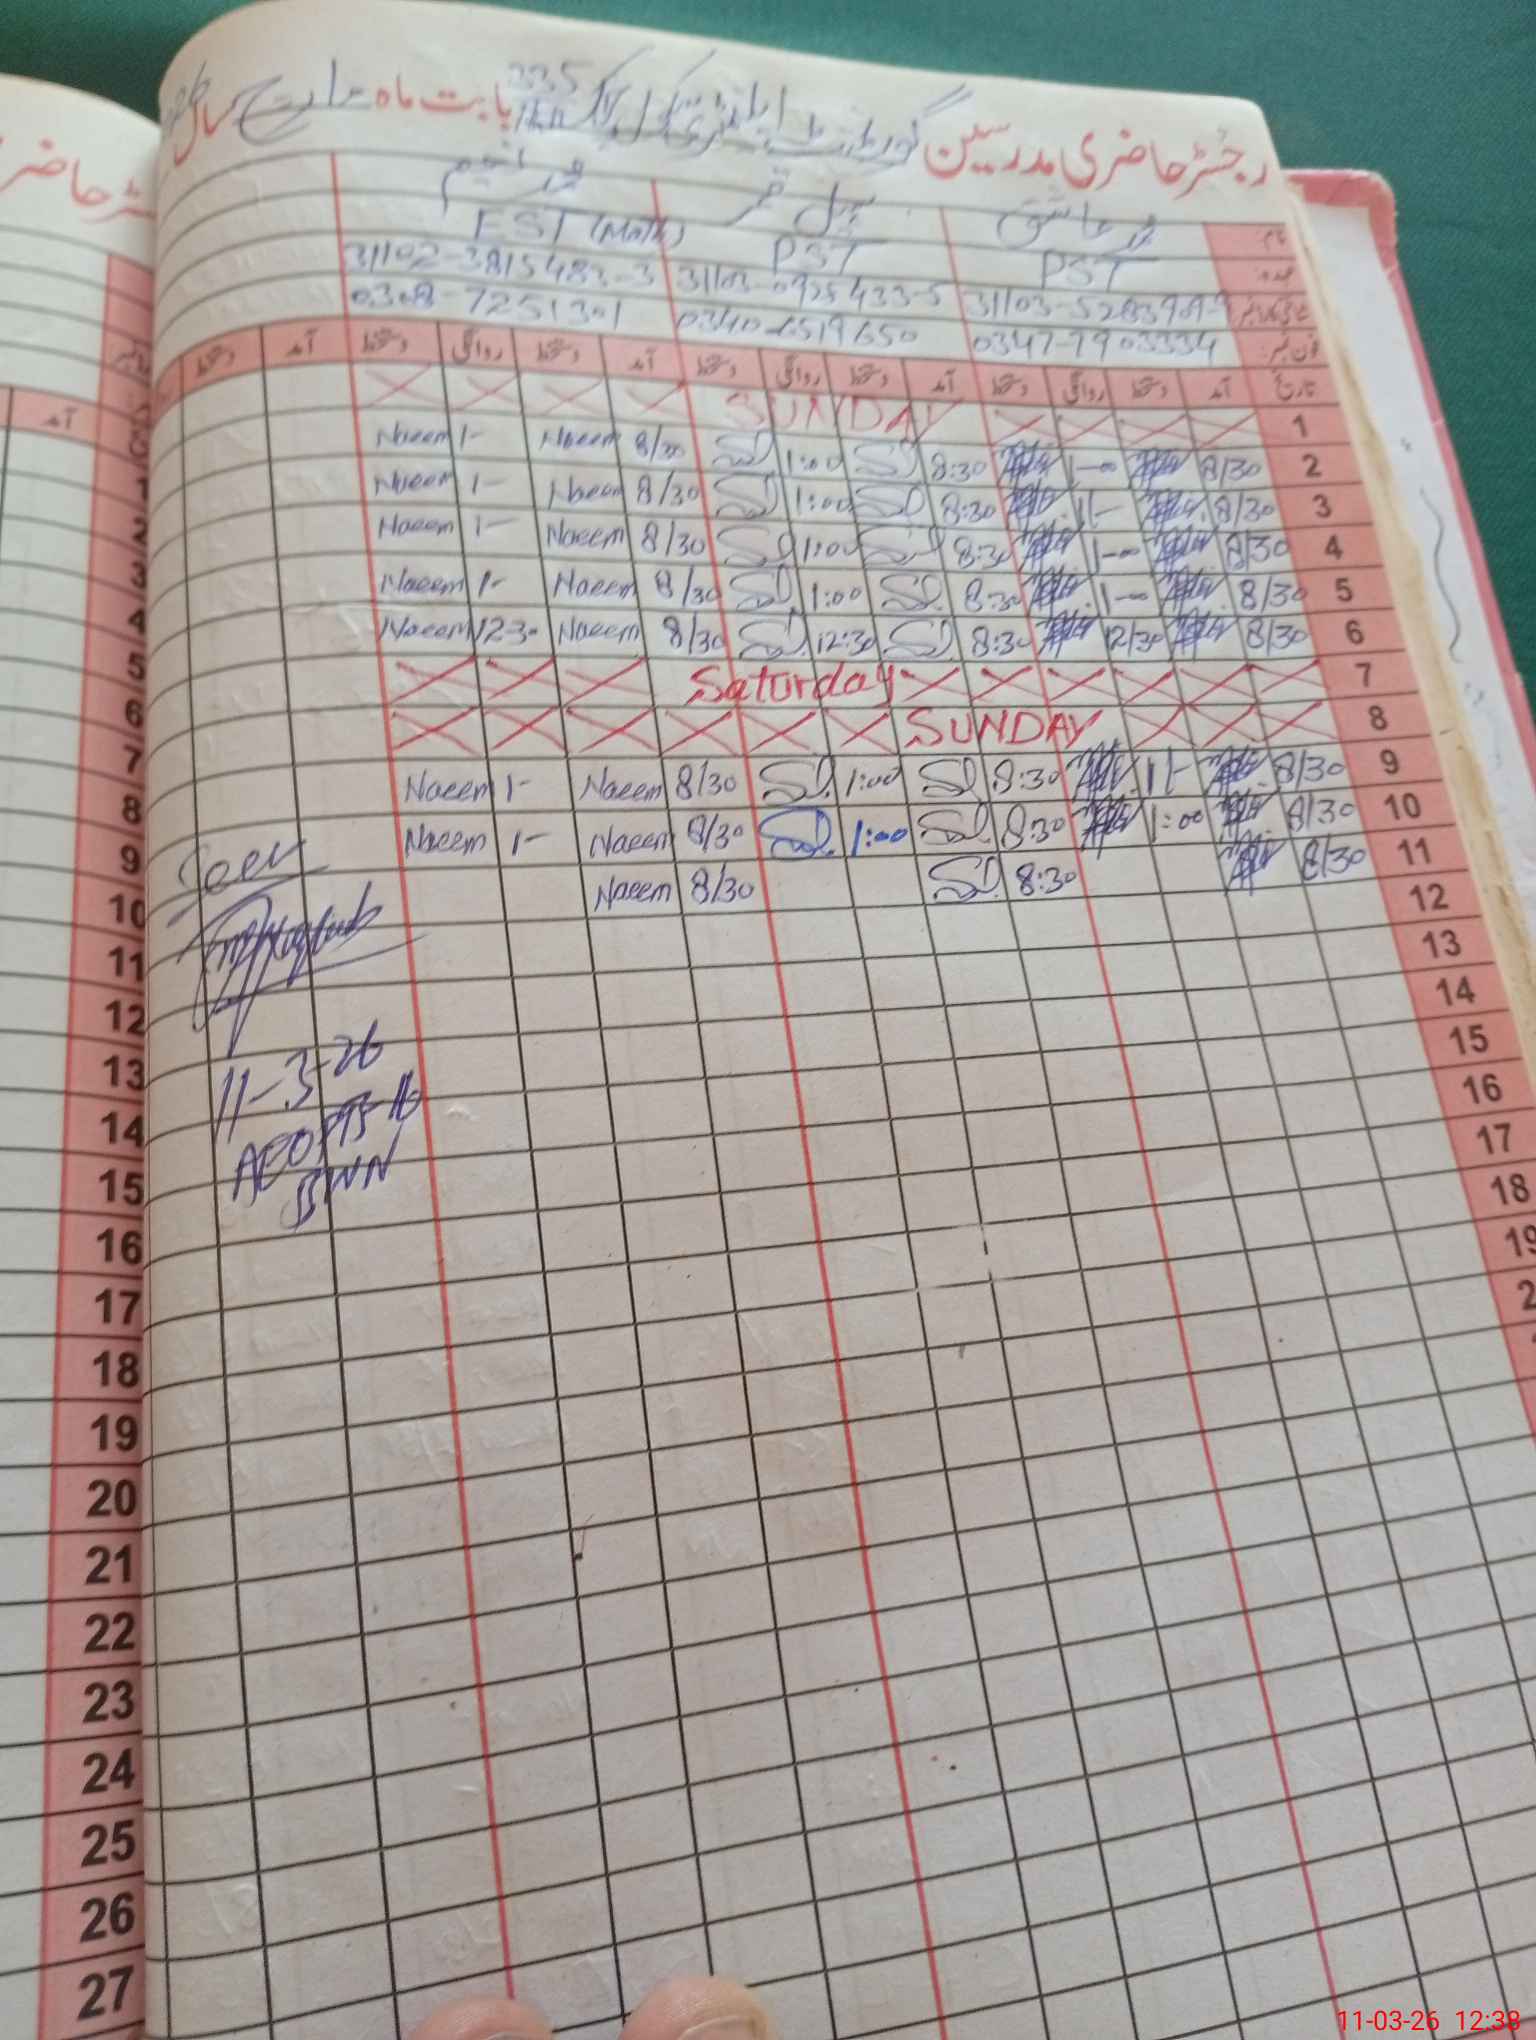 رجسٹر حاضری مدرسین گورنمنٹ ایلیمنٹری سکول چک 335 بابت ماہ مارچ سال
نام محمد عاشق
PST PST EST (Math)
31103-5283909-9 31103-0925433-5 31102-3815483-3
فون نمبر: 0347-7903334 0340-6519650 0308-7251301
تاریخ آمد دستخط روانگی دستخط آمد دستخط روانگی دستخط آمد دستخط روانگی دستخط آمد دستخط
1 SUNDAY
2 8/30 1-00 8:30 1:00 8/30 Naeem 1- Naeem
3 8/30 1- 8:30 1:00 8/30 Naeem 1- Naeem
4 8/30 1-00 8:30 1:00 8/30 Naeem 1- Naeem
5 8/30 1-00 8:30 1:00 8/30 Naeem 1- Naeem
6 8/30 12/30 8:30 12:30 8/30 Naeem 1230 Naeem
7 Saturday
8 SUNDAY
9 8/30 1- 8:30 1:00 8/30 Naeem 1- Naeem
10 8/30 1:00 8:30 1:00 8/30 Naeem 1- Naeem
11 8/30 8:30 8/30 Naeem
12
13
14
15
16
17
18
19
Seen
11-3-26
AEO
BWN
آمد
1
2
3
4
5
6
7
8
9
10
11
12
13
14
15
16
17
18
19
20
21
22
23
24
25
26
27
11-03-26 12:38